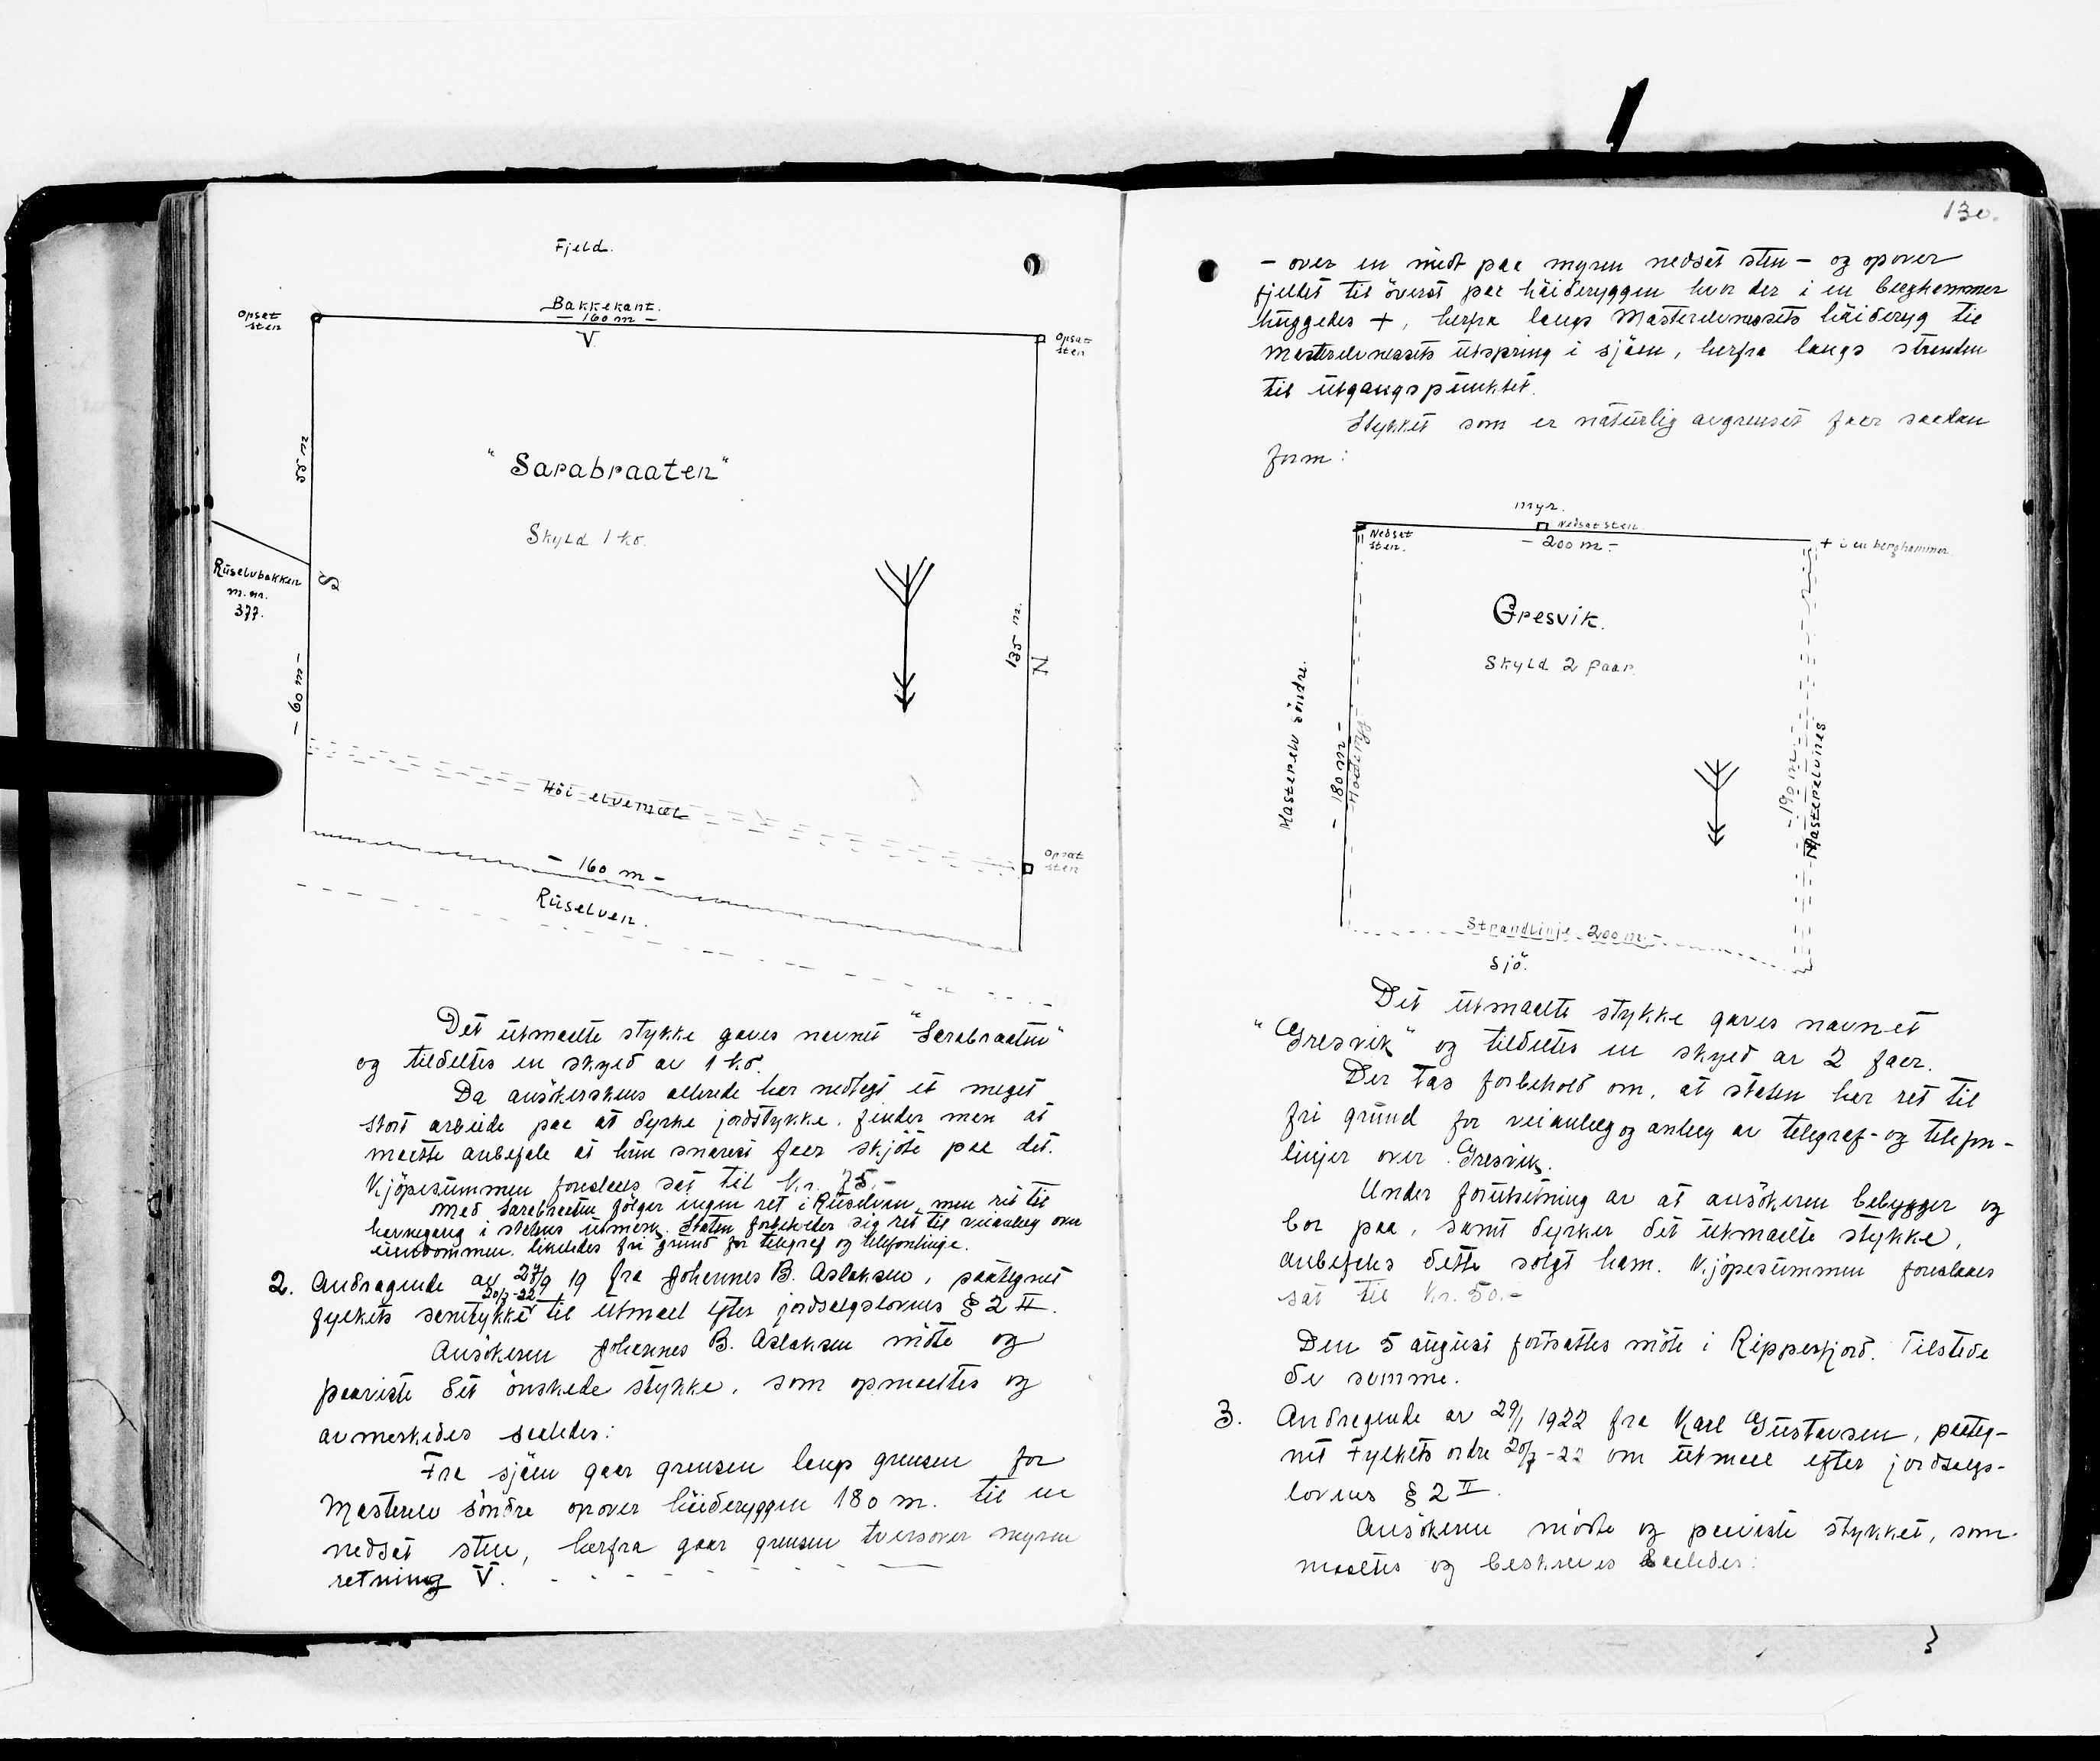 Fjeld.
Bakkekant.
— 160 m —
V
Opsat
sten
Opsat
sten
55 m
"Sarabraaten"
Skyld 1 kø.
Rüselvbakken
m. nr.
377.
S
— 60 m —
135 m.
N
Höi-elvemæl
Opsat
sten
— 160 m —
Rüselven.
Det ütmaalte stykke gaves navnet "Sarabraaten"
og tildeltes en skyld av 1 kø.
Da ansökerskens allerede har nedlagt et meget
stort arbeide paa at dyrke jordstykke, finder man at
maatte anbefale at hün snarest faar skjöte paa det.
Kjöpesümmen foreslaaes sat til kr. 75.—
Med Sarabraaten fölger ingen ret i Rüselven, men ret til
havnegang i statens ütmark. Staten forbeholder sig ret til veianlæg over
eiendommen, likeledes fri gründ for telegraf og telefonlinje.
2. Andragende av 27/9 19 fra Johannes B. Aslaksen, paategnet
fylkets samtykke 20/7-22 til ütmaal efter jordsalgslovens § 2 II.
Ansökeren Johannes B. Aslaksen mötte og
paaviste det önskede stykke, som opmaaltes og
avmerkedes saaledes:
Fra sjöen gaar grensen langs grensen for
Masterelv söndre opover höideryggen 180 m. til en
nedsat sten, herfra gaar grensen tversover myren
retning V.
130.
— over en midt paa myren nedsat sten — og opover
fjeldet til överst paa höideryggen hvor der i en berghammer
hüggedes +, herfra langs Masterelvnessets höideryg til
Masterelvnessets ütspring i sjöen, herfra langs stranden
til ütgangspünktet.
Stykket som er natürlig avgrenset faar saadan
form:
myr.
Nedsat sten.
Nedsat
sten.
— 200 m —
+ i en berghammer.
Gresvik.
Skyld 2 øaar.
Masterelv söndre.
— 180 m —
Höideryg
— 190 m —
Masterelvnes
Strandlinje 200 m.—
Sjö.
Det ütmaalte stykke gaves navnet
"Gresvik" og tildeltes en skyld av 2 øaar.
Der tas forbehold om, at staten har ret til
fri gründ for veianlæg og anlæg av telegraf- og telefon-
linjer over Gresvik.
Under forütsetning av at ansökeren bebygger og
bor paa, samt dyrker det ütmaalte stykke,
anbefales dette solgt ham. Kjöpesümmen foreslaaes
sat til kr. 50.—
Den 5 aügüst fortsattes möte i Repparfjord. Tilstede
de samme.
3. Andragende av 29/1 1922 fra Karl Güstavsen, paateg-
net Fylkets ordre 20/7-22 om ütmaal efter jordsalgs-
lovens § 2 II.
Ansökeren mötte og paaviste stykket, som
maaltes og beskreves saaledes: